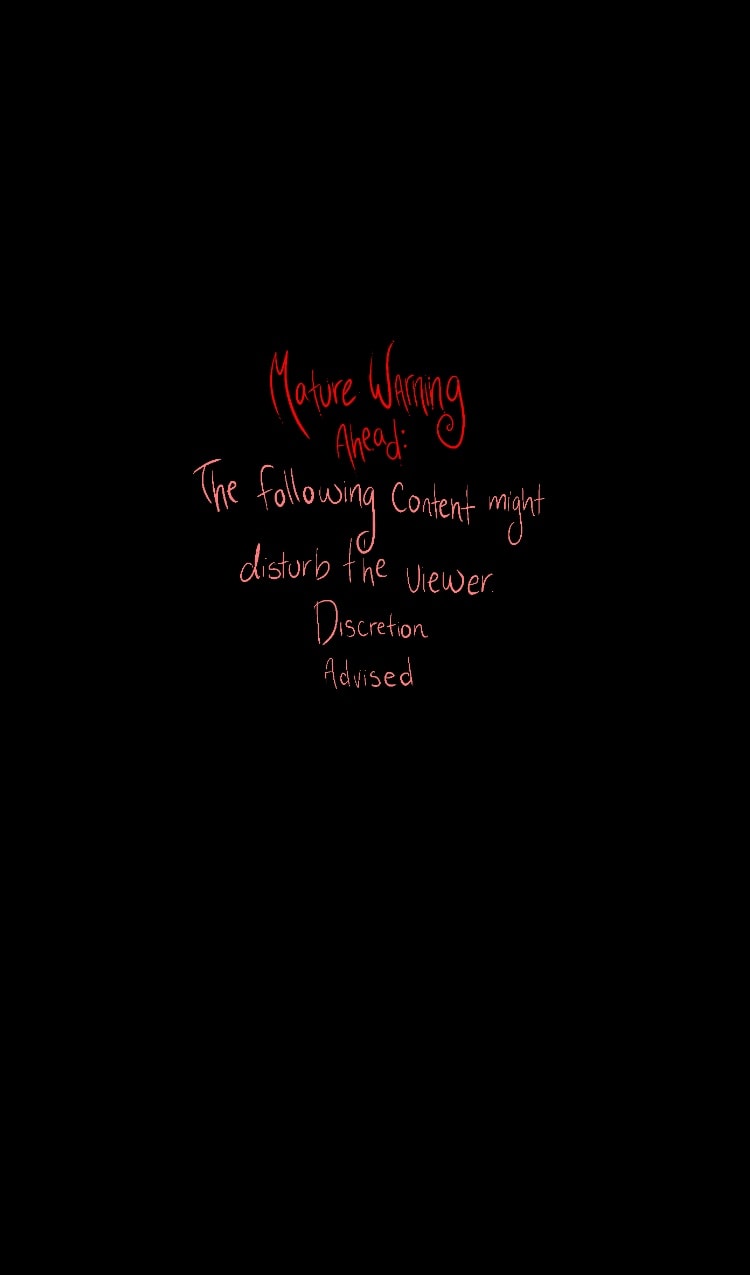 Mature Warning
Ahead:
The following Content might
disturb the viewer.
Discretion
Advised